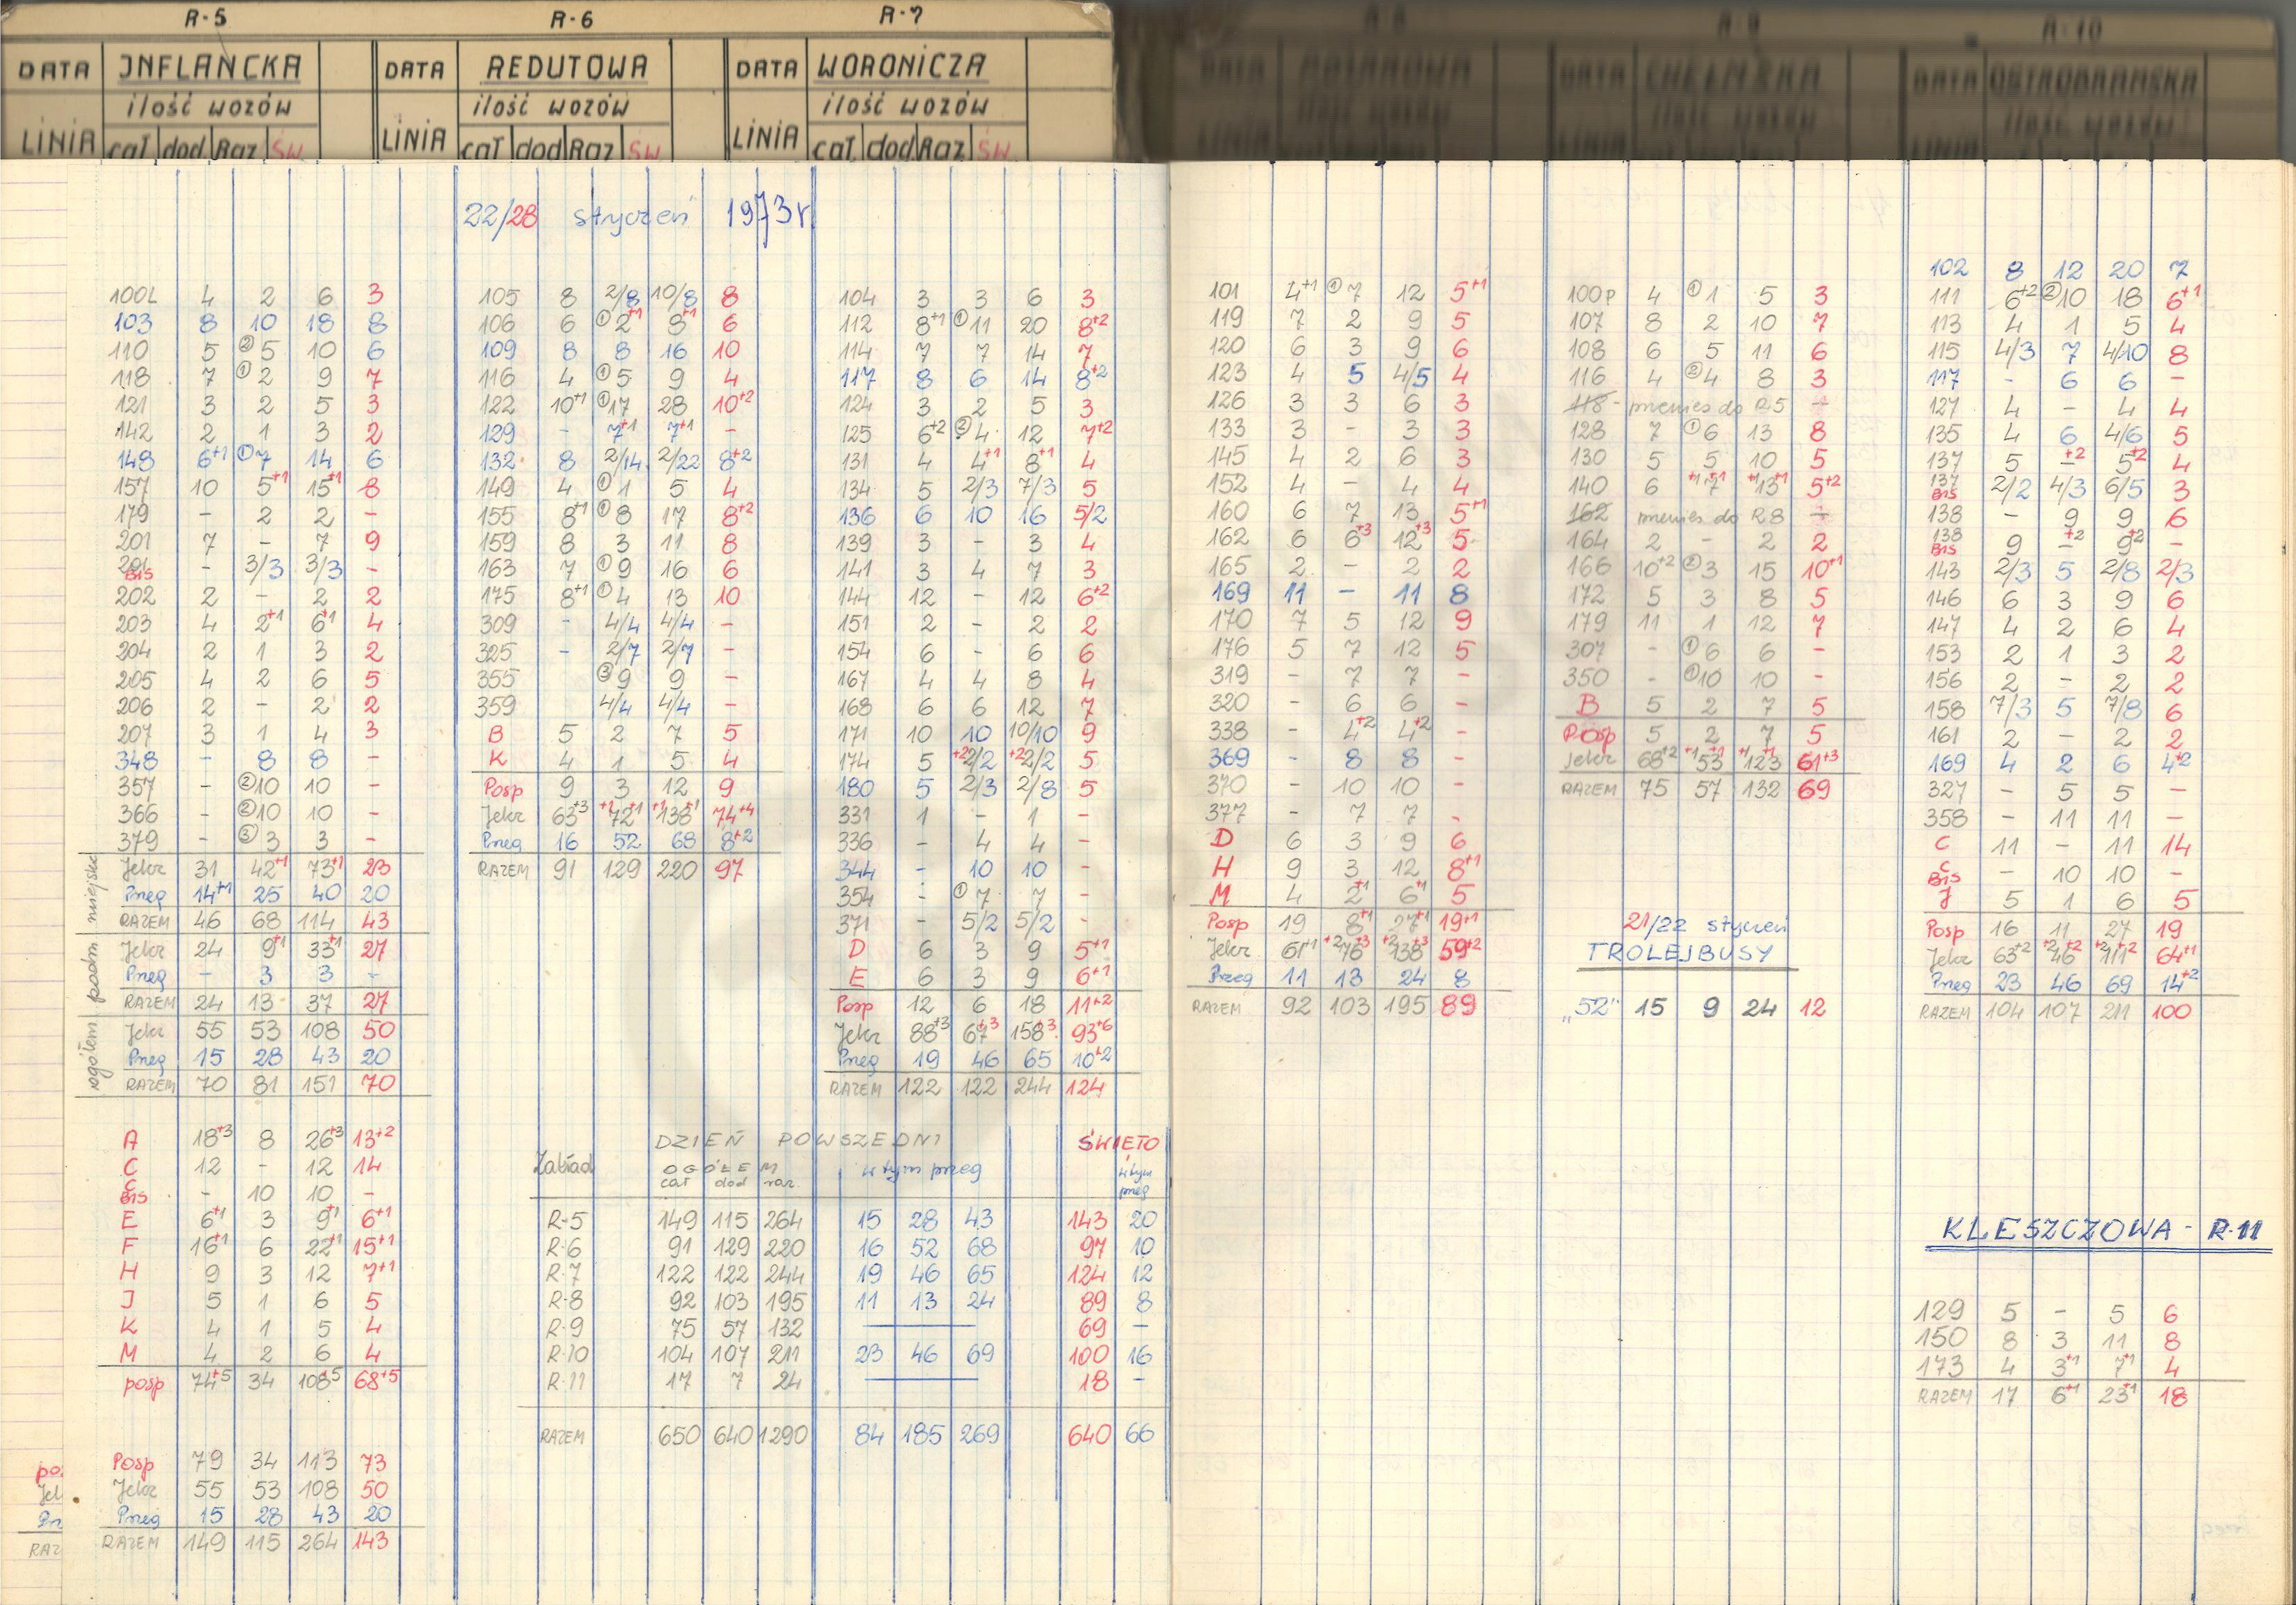 R-5 R-6 R-7 R-8 R-9 R-10
DATA INFLANCKA DATA REDUTOWA DATA WORONICZA DATA DATA CHEŁMSKA DATA OSTROBRAMSKA
ilość wozów ilość wozów ilość wozów ilość wozów ilość wozów ilość wozów
LINIA cał dod Raz św. LINIA cał dod Raz św. LINIA cał. dod Raz. św. LINIA LINIA LINIA
22/28 styczeń 1973 r
100L 4 2 6 3
103 8 10 18 8
110 5 ②5 10 6
118 7 ①2 9 7
121 3 2 5 3
142 2 1 3 2
148 6+1 ①7 14 6
157 10 5+1 15+1 8
179 - 2 2 -
201 7 - 7 9
201 BIS - 3/3 3/3 -
202 2 - 2 2
203 4 2+1 6+1 4
204 2 1 3 2
205 4 2 6 5
206 2 - 2 2
207 3 1 4 3
348 - 8 8 -
357 - ②10 10 -
366 - ②10 10 -
379 - ③3 3 -
miejskie
Jelcz 31 42+1 73+1 23
Przeg 14+1 25 40 20
RAZEM 46 68 114 43
podm
Jelcz 24 9+1 33+1 27
Przeg - 3 3 -
RAZEM 24 13 37 27
ogółem
Jelcz 55 53 108 50
Przeg 15 28 43 20
RAZEM 70 81 151 70
A 18+3 8 26+3 13+2
C 12 - 12 14
C BIS - 10 10 -
E 6+1 3 9+1 6+1
F 16+1 6 22+1 15+1
H 9 3 12 7+1
J 5 1 6 5
K 4 1 5 4
M 4 2 6 4
posp 74+5 34 108+5 68+5
Posp 79 34 113 73
Jelcz 55 53 108 50
Przeg 15 28 43 20
RAZEM 149 115 264 143
105 8 2/8 10/8 8
106 6 ①2+1 8+1 6
109 8 8 16 10
116 4 ①5 9 4
122 10+1 ①17 28 10+2
129 - 7+1 7+1 -
132 8 2/14 2/22 8+2
149 4 ①1 5 4
155 8+1 ①8 17 8+2
159 8 3 11 8
163 7 ①9 16 6
175 8+1 ①4 13 10
309 - 4/4 4/4 -
325 - 2/7 2/7 -
355 ③9 9 -
359 4/4 4/4 -
B 5 2 7 5
K 4 1 5 4
Posp 9 3 12 9
Jelcz 63+3 +1 72+1 +1 138+1 74+4
Przeg 16 52 68 8+2
RAZEM 91 129 220 97
104 3 3 6 3
112 8+1 ①11 20 8+2
114 7 7 14 7
117 8 6 14 8+2
124 3 2 5 3
125 6+2 ②4 12 7+2
131 4 4+1 8+1 4
134 5 2/3 7/3 5
136 6 10 16 5/2
139 3 - 3 4
141 3 4 7 3
144 12 - 12 6+2
151 2 - 2 2
154 6 - 6 6
167 4 4 8 4
168 6 6 12 7
171 10 10 10/10 9
174 5 +2 2/2 +2 2/2 5
180 5 2/3 2/8 5
331 1 - 1 -
336 - 4 4 -
344 - 10 10 -
354 - ①7 7 -
371 - 5/2 5/2 -
D 6 3 9 5+1
E 6 3 9 6+1
Posp 12 6 18 11+2
Jelcz 88+3 67+3 158+3 93+6
Przeg 19 46 65 10+2
RAZEM 122 122 244 124
DZIEŃ POWSZEDNI ŚWIĘTO
Zakład OGÓŁEM w tym przeg w tym przeg
cał dod raz.
R-5 149 115 264 15 28 43 143 20
R-6 91 129 220 16 52 68 97 10
R-7 122 122 244 19 46 65 124 12
R-8 92 103 195 11 13 24 89 8
R-9 75 57 132 69 -
R-10 104 107 211 23 46 69 100 16
R-11 17 7 24 18 -
RAZEM 650 640 1290 84 185 269 640 66
101 4+1 ①7 12 5+1
119 7 2 9 5
120 6 3 9 6
123 4 5 4/5 4
126 3 3 6 3
133 3 - 3 3
145 4 2 6 3
152 4 - 4 4
160 6 7 13 5+1
162 6 6+3 12+3 5
165 2 - 2 2
169 11 - 11 8
170 7 5 12 9
176 5 7 12 5
319 - 7 7 -
320 - 6 6 -
338 - 4+2 4+2 -
369 - 8 8 -
370 - 10 10 -
377 - 7 7 -
D 6 3 9 6
H 9 3 12 8+1
M 4 2+1 6+1 5
Posp 19 8+1 27+1 19+1
Jelcz 61+1 +2 76+3 +2 138+3 59+2
Przeg 11 13 24 8
RAZEM 92 103 195 89
100P 4 ①1 5 3
107 8 2 10 7
108 6 5 11 6
116 4 ②4 8 3
118 - przenies do R5 -
128 7 ①6 13 8
130 5 5 10 5
140 6 +1 7+1 +1 13+1 5+2
162 przenies do R8 -
164 2 - 2 2
166 10+2 ②3 15 10+1
172 5 3 8 5
179 11 1 12 7
307 - ①6 6 -
350 - ①10 10 -
B 5 2 7 5
Posp 5 2 7 5
Jelcz 68+2 +1 53+1 +1 123+1 61+3
RAZEM 75 57 132 69
21/22 styczeń
TROLEJBUSY
„52" 15 9 24 12
102 8 12 20 7
111 6+2 ②10 18 6+1
113 4 1 5 4
115 4/3 7 4/10 8
117 - 6 6 -
127 4 - 4 4
135 4 6 4/6 5
137 5 -+2 5+2 4
137 BIS 2/2 4/3 6/5 3
138 - 9 9 6
138 BIS 9 -+2 9+2 -
143 2/3 5 2/8 2/3
146 6 3 9 6
147 4 2 6 4
153 2 1 3 2
156 2 - 2 2
158 7/3 5 7/8 6
161 2 - 2 2
169 4 2 6 4+2
327 - 5 5 -
358 - 11 11 -
C 11 - 11 14
C BIS - 10 10 -
J 5 1 6 5
Posp 16 11 27 19
Jelcz 63+2 +2 46+2 +2 111+2 64+1
Przeg 23 46 69 14+2
RAZEM 104 107 211 100
KLESZCZOWA - R-11
129 5 - 5 6
150 8 3 11 8
173 4 3+1 7+1 4
RAZEM 17 6+1 23+1 18